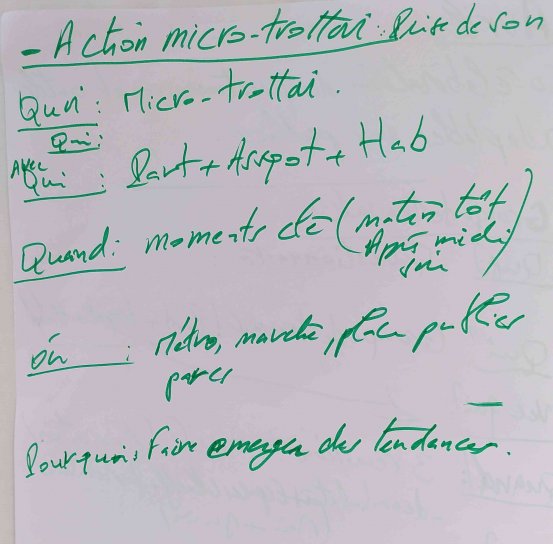 - Action micro-trottoir : Prise de son
Quoi : Micro-trottoir.
Qui :
Avec Qui : Part + Asspot + Hab
Quand : moments clé (matin tôt
Après midi
soir)
où : Métro, marché, place publics
parcs
Pourquoi : Faire emerger des tendances.